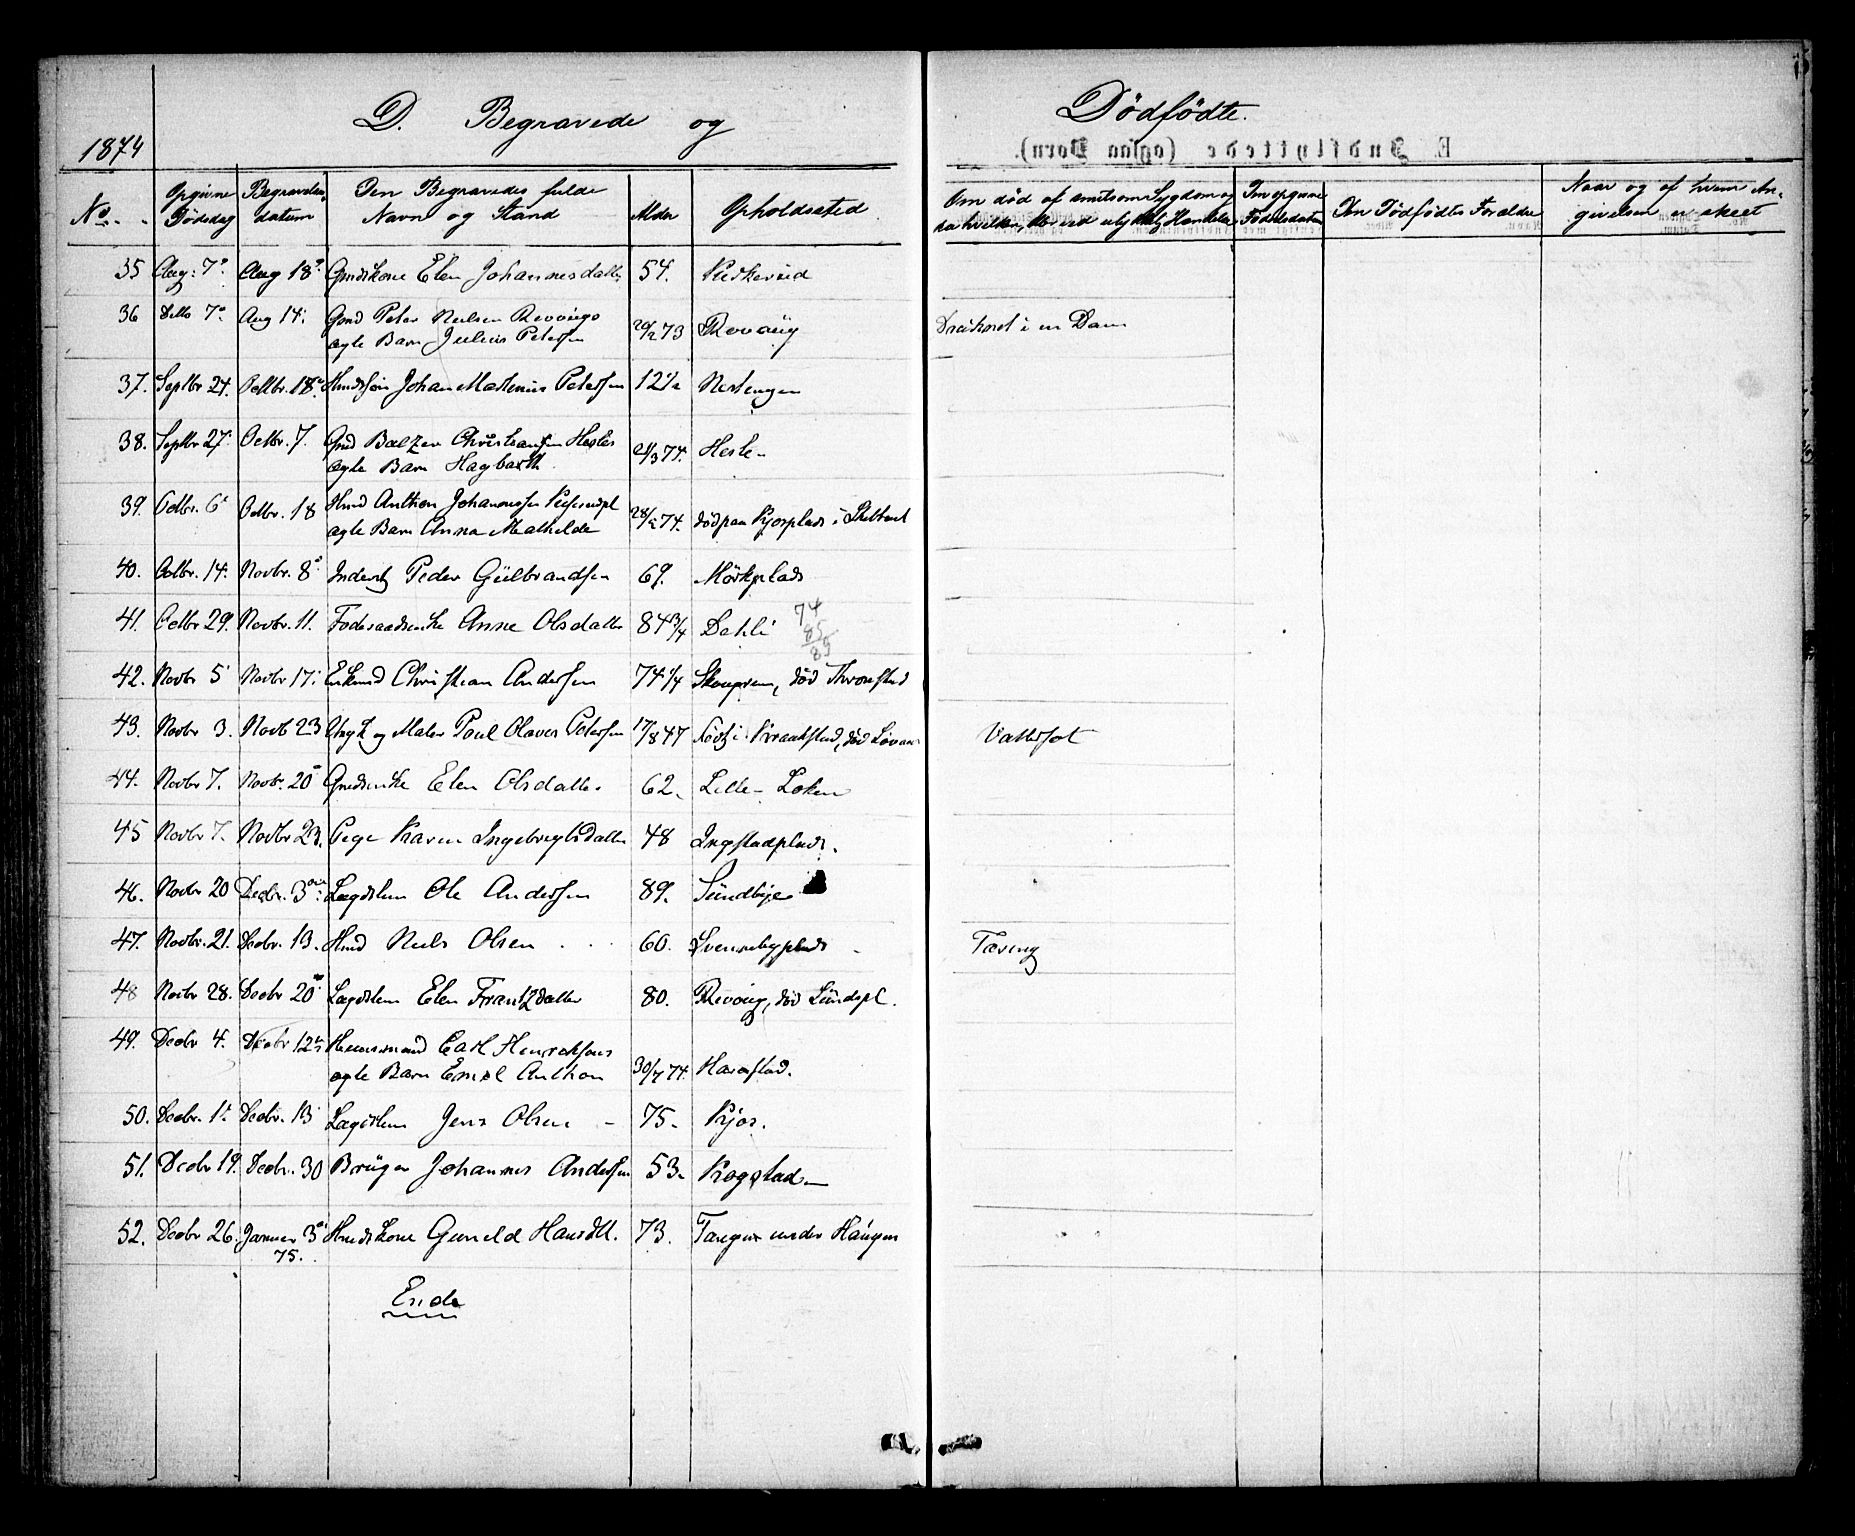 D. Begravede og Dødfødte.
1874
E. Indflyttede (ogsaa Born).
No. Opgivne Dødsdag Begravelsesdatum Den Begravedes fulde Navn og Stand Alder Opholdssted Om død af smitsom Sygdom og da hvilken, eller ved ulykkelig Hændelse Den opgivne Fødselsdatum Den Dødfødtes Forældre Naar og af hvem Angivelsen er skeet
35 Aug: 7de Aug 18de Gmdskone Elen Johannesdatter 54.
36 Ditto 7de Aug 14. Gmd Peter Nielsen Revougs 20/2 73 Revoug Druknet i en Dam
ægte Barn Julius Petersen
37. Septbr 24. Octbr. 18de Johan Martinius Petersen 12 1/2 Nestengen
38. Septbr 27. Octbr. 7. Gmd Balzer Christiansen Hesles 21/3 74. Hesle
ægte Barn Hagbarth
39. Octbr. 6. Octbr. 18 Hmd Anthon Johannessen 74. død paa Kjosplads i
ægte Barn Anna Mathilde
40. Octbr. 14. Novbr. 8de Inderst Peder Gulbrandsen 69. Mörkplads
41. Octbr 29. Novbr. 11. Födersaadsenke Anne Olsdatter 84 3/4 Dahli
74
85
85
42. Novbr 5 Novbr 17. Enkmd Christian Andersen 74 1/4 Skougrem, död Thronstad
43. Novbr 3. Novb 23 Ungk og Maler Poul Olaves Petersen 17/8 47 Født i Kraakstad, död Vattersot
44. Novbr 7. Novbr. 20 Gmdsenke Elen Olsdatter 62. Lille Løken
45 Novbr 7. Novbr 23. Pige Karen Ingebregtsdatter 48 Ingstadplads.
46. Novbr 20 Decbr. 3die Lægdslem Ole Andersen 89. Sundbye
47. Novbr. 21. Decbr. 13. Hmd Niels Olsen 60. Svennebyplads Tæring
48 Novbr 28. Decbr 20 Lægdslem Elen Frantzdatter 80. Revoug, död Lundspl.
49. Decbr 4. Decbr 12 Huusmand Carl Henriksens
ægte Barn Emil Anthon 30/7 74. Harestad.
50. Decbr. 1. Decbr. 13 Lægdslem Jens Olsen 75. Kjos.
51. Decbr 19. Decbr. 30 Bruger Johannes Andersen 53. Rogstad
52. Decbr 26. Januar 3die Hmdskone Gunild Hansdtt. 73. Tangen under Haugen
75.
Ende